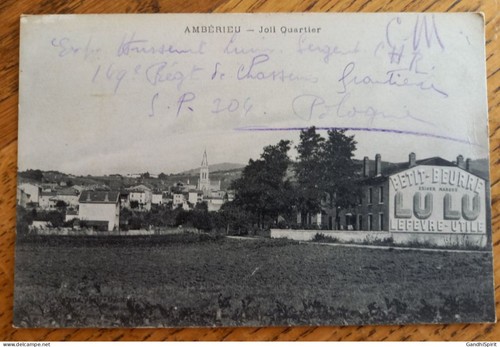 AMBÉRIEU — Joli Quartier
Exp. Housseinet Sergent C M
H R
149e Régt de Chasseurs frontière
S.P. 204. Pologne
PETIT-BEURRE
LU LU
LEFEVRE-UTILE
©DelcampeNet
GandhiSpirit